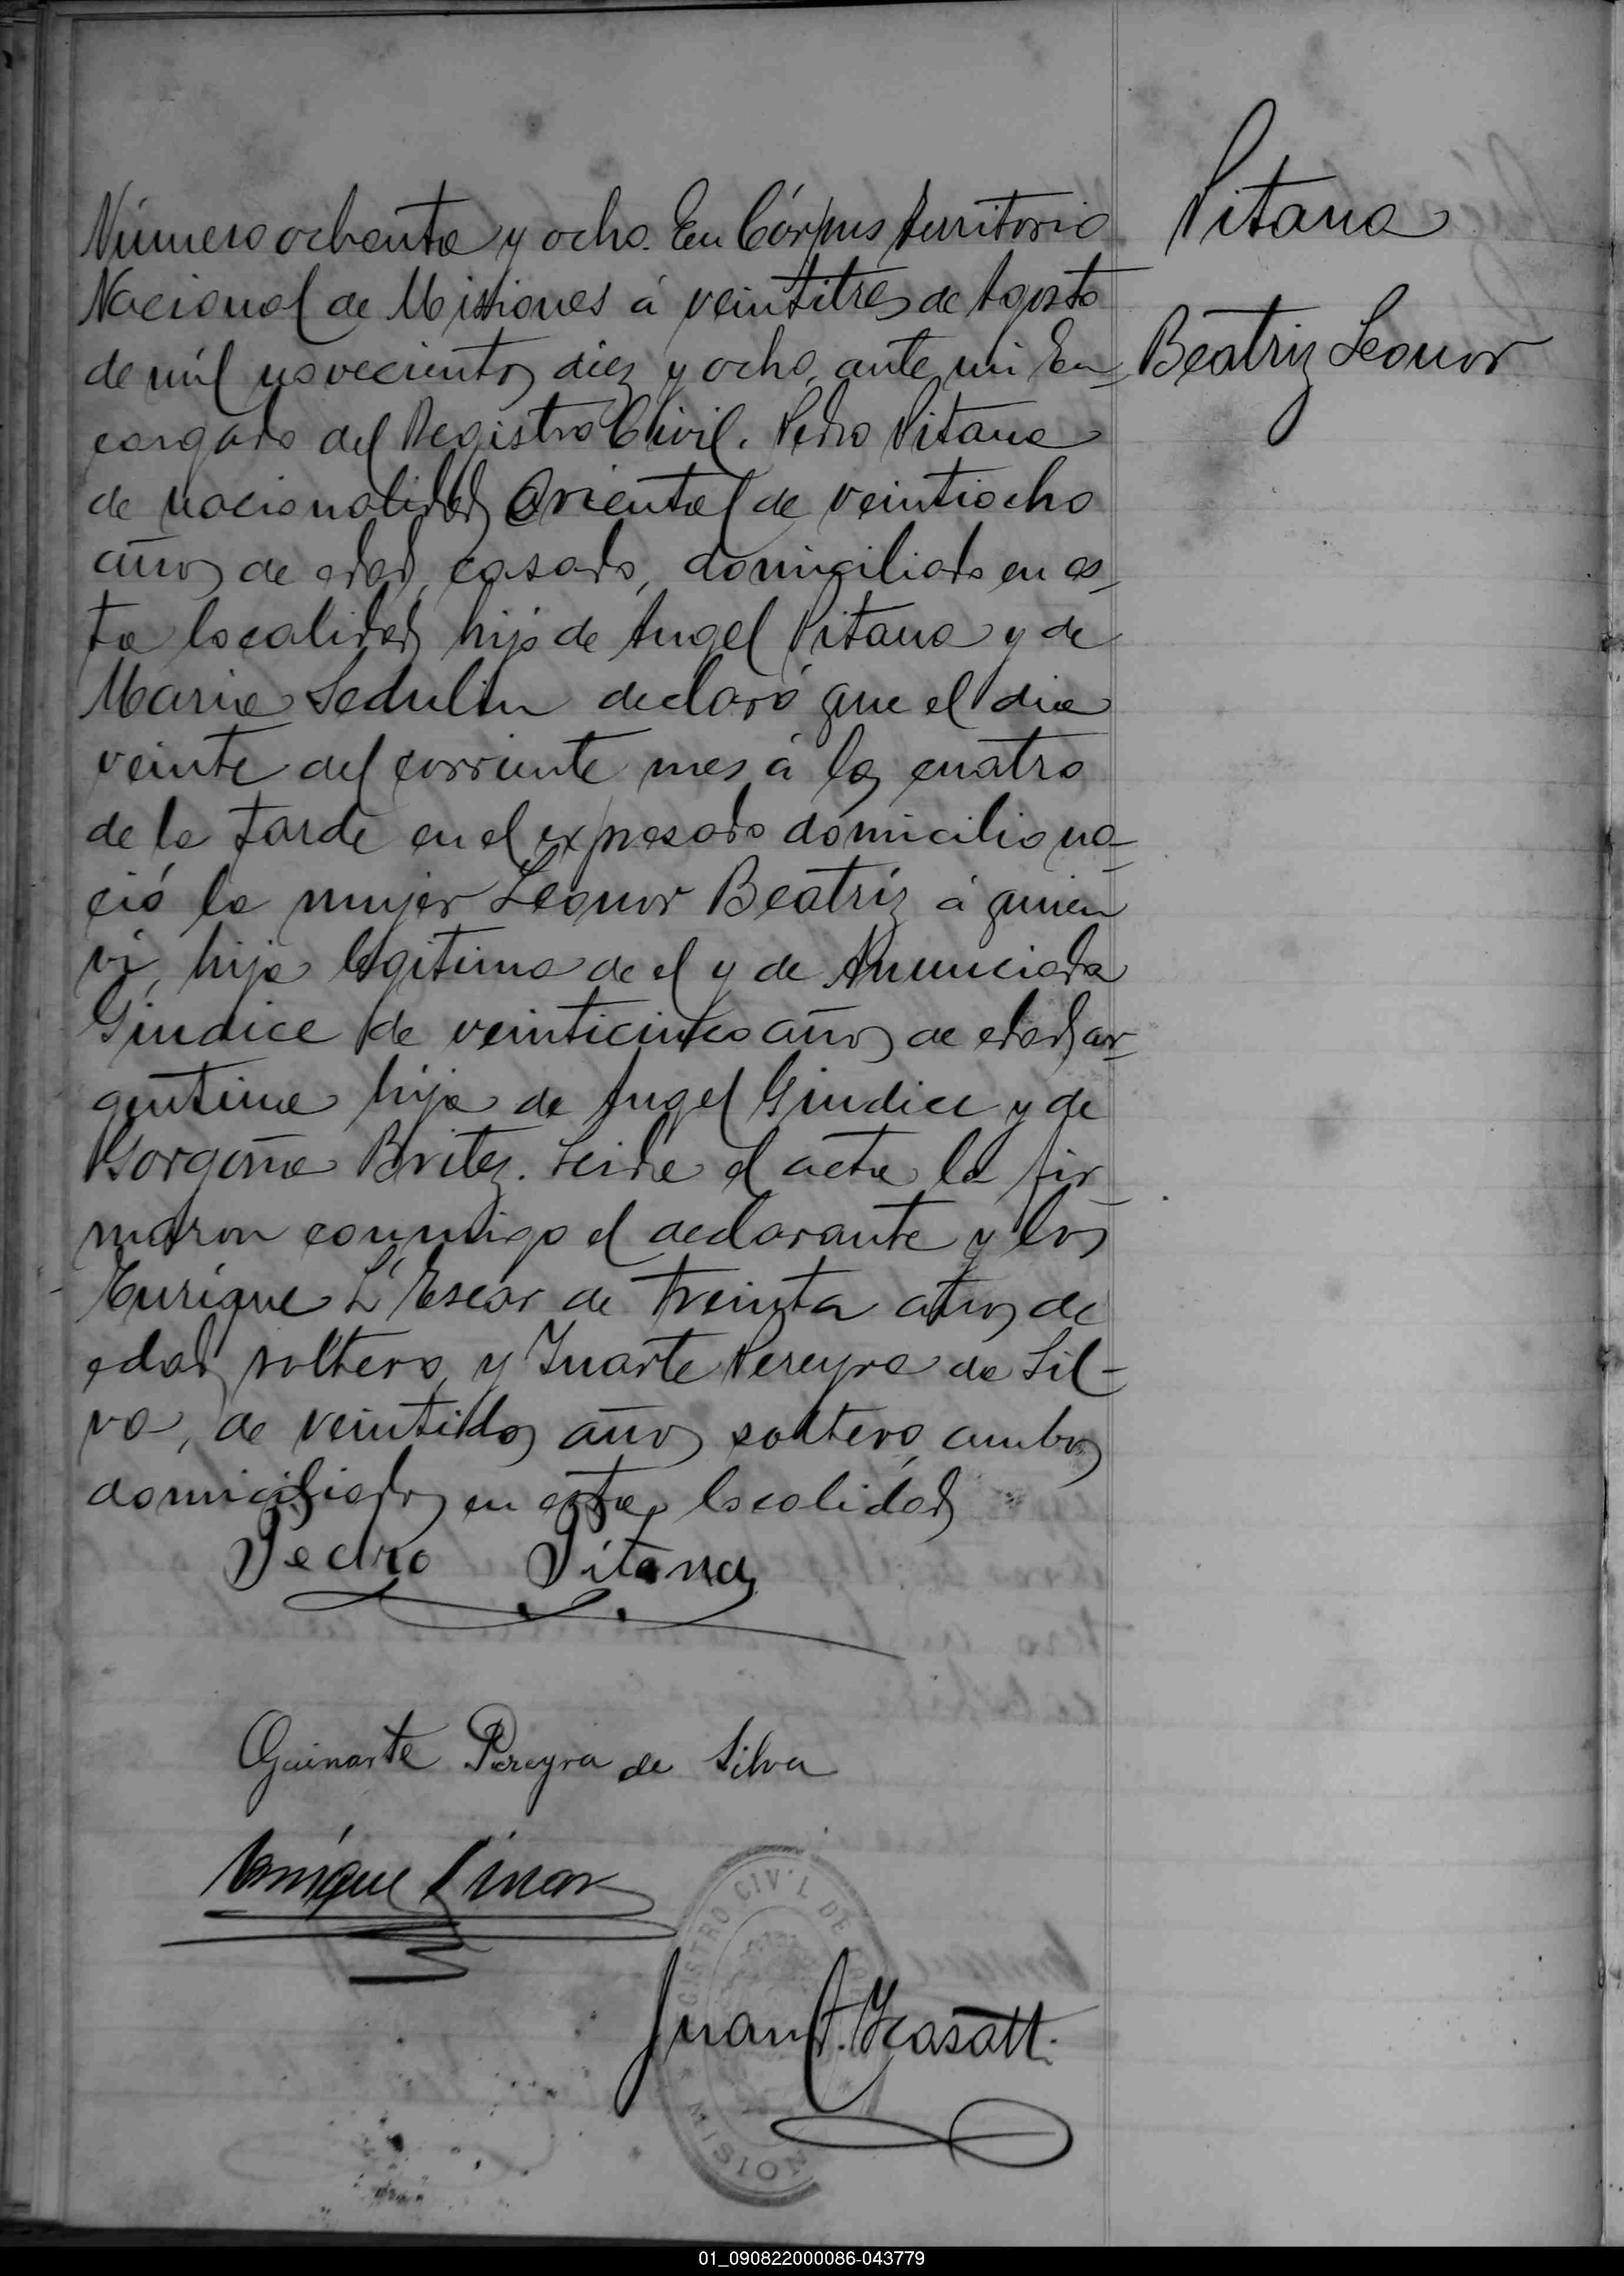 Número ochenta y ocho. En Córpus territorio
Nacional de Misiones á veintitres de Agosto
de mil novecientos diez y ocho, ante mi En-
cargado del Registro Civil. Pedro Pitana
de nacionalidad Oriental de veintiocho
años de edad, casado, domiciliado en es-
ta localidad hijo de Angel Pitana y de
Maria declaró que el dia
veinte del corriente mes á las cuatro
de la tarde en el expresado domicilio na-
ció la mujer Leonor Beatriz á quien
vi, hija legitima de el y de Anunciada
Giudice de veinticinco años de edad, ar-
gentina hija de Angel Giudice y de
Gorgoña Britez. Leida el acta la fir-
maron conmigo el declarante y los
Enrique de treinta años de
edad, soltero, y Pereyra de Sil-
va, de veintidos años soltero, ambos
domiciliados en esta localidad
Pedro Pitana
Guinarte Pereyra de Silva
Enrique
Juan
REGISTRO CIVIL DE
MISIONES
Pitana
Beatriz Leonor
01_090822000086-043779